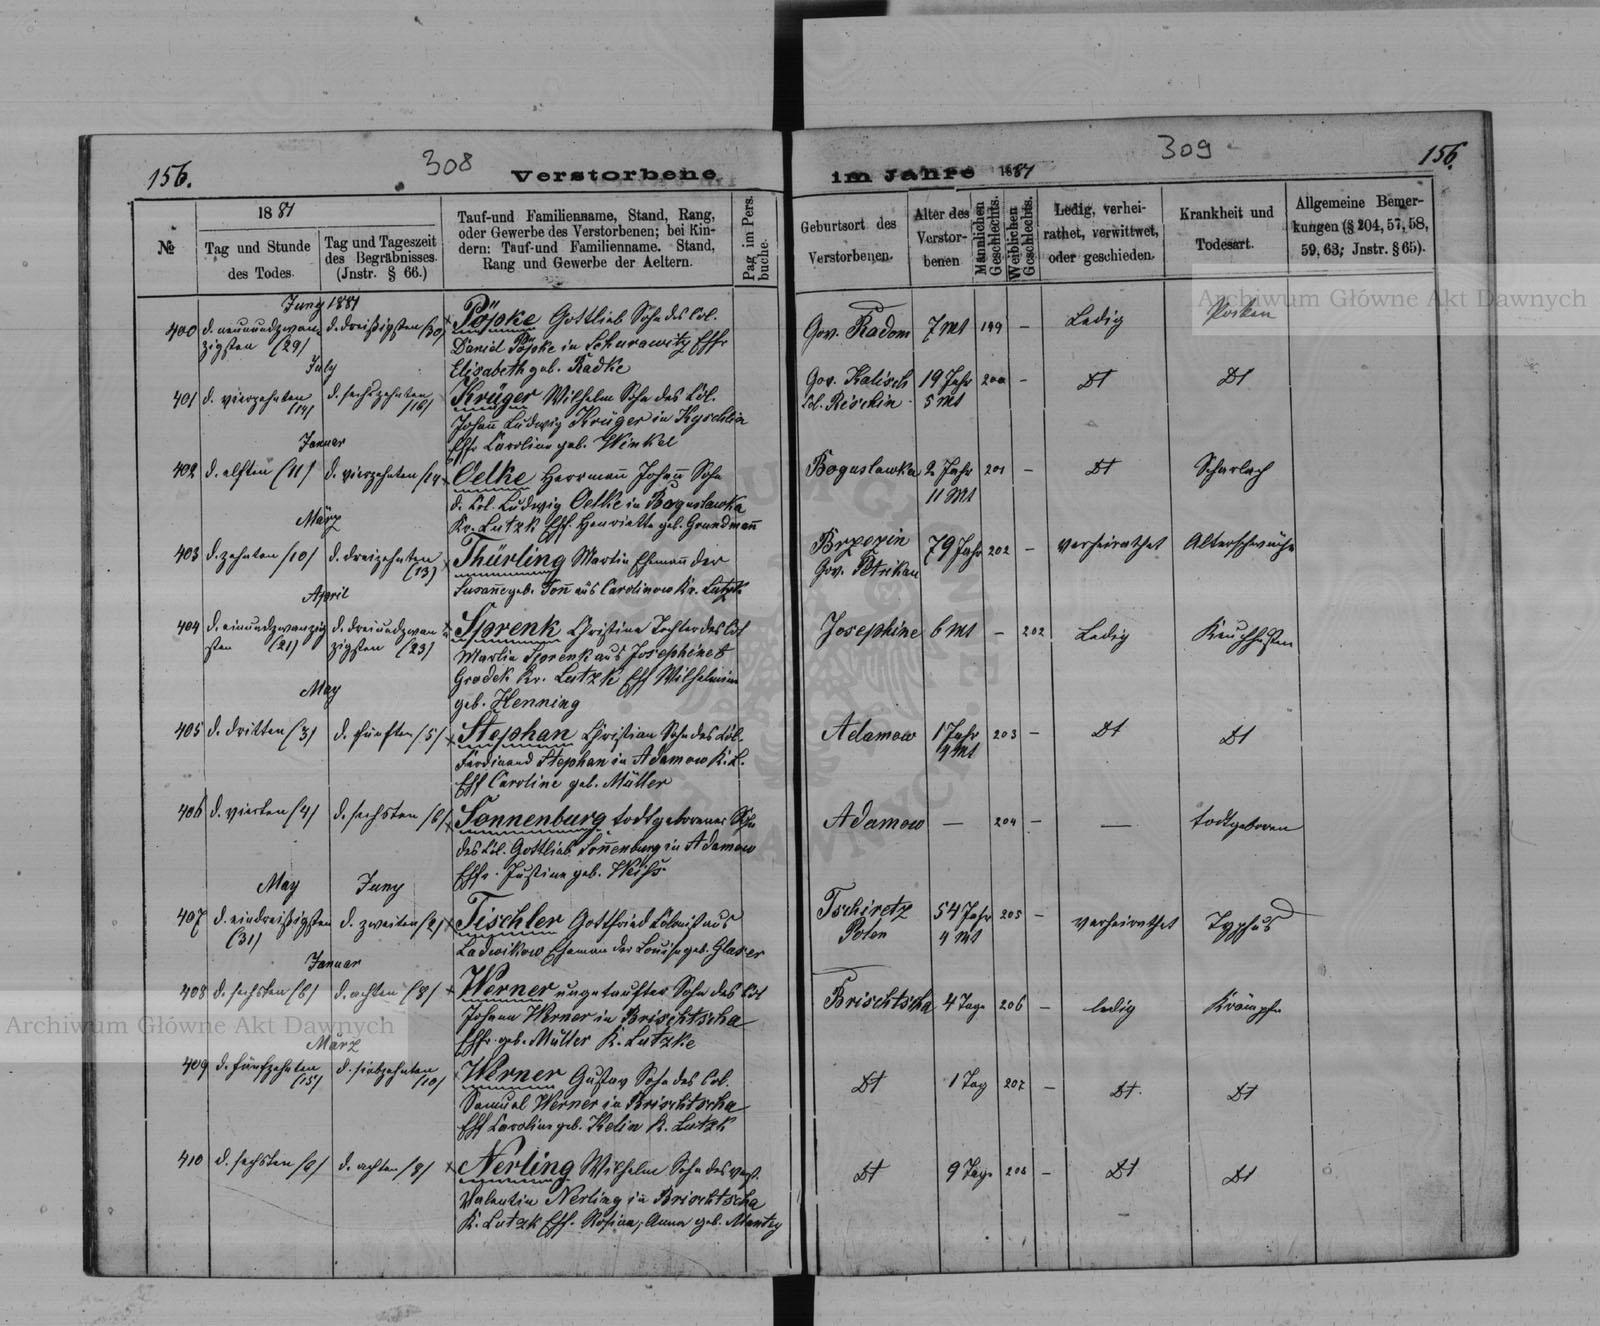 156.
308
Verstorbene
№
1881
Tag und Stunde
des Todes.
Tag und Tageszeit
des Begräbnisses.
(Jnstr. § 66.)
Tauf-und Familienname, Stand, Rang,
oder Gewerbe des Verstorbenen; bei Kin-
dern: Tauf-und Familienname. Stand,
Rang und Gewerbe der Aeltern.
Pag im Pers.
buche.
Juny 1881
400 d. neunundzwan- d. dreißigsten (30) Pöpke Gottlieb Sohn des Col.
zigsten (29) Daniel Pöpke in Schurawitz Ehfr
July Elisabeth geb. Radke
401 d. vierzehnten (14) d. sechszehnten (16) Krüger Wilhelm Sohn des Col.
Johañ Ludwig Krüger in
Januar Ehfr Caroline geb. Winkel
402 d. elften (11) d. vierzehnten (14 Oelke Herrmañ Johañ Sohn
d. Col. Ludwig Oelke in Boguslawka
März Kr. Lutzk Ehf. Henriette geb. Grundmañ
403 d. zehnten (10) d. dreizehnten (13) Thürling Martin Ehemañ der
Susañe geb. Toñ aus Carolinow Kr. Lutzk
April
404 d. einundzwanzig d. dreiundzwan Sprenk Christina Tochter des Col
sten (21) zigsten (23) Martin Sprenk aus Josephine b
Grodek Kr. Lutzk Ehf Wilhelmine
May geb. Henning
405 d. dritten (3) d. fünften (5) Stephan Christian Sohn des Col.
Ferdinand Stephan in Adamow K. L.
Ehf Caroline geb. Müller
406 d. vierten (4) d. sechsten (6) Sonnenburg todtgeborener Sohn
des Col. Gottlieb Soñenburg in Adamow
Ehfr. Justine geb. Weiss
May Juny
407 d. eindreißigsten d. zweiten (2) Tischler Gottfried Colonist aus
(31) Ludwikow Eheman der Louise geb. Glaser
Januar
408 d. sechsten (6) d. achten (8) Werner ungetaufter Sohn des Col
Johann Werner in Brischtscha
März Ehfr. geb. Müller K. Lutzke
409 d. fünfzehnten (15) d. siebzehnten Werner Gustav Sohn des Col.
Samuel Werner in Brischtscha
Ehf Caroline geb. Kelin K. Lutzk
410 d. sechsten d. achten Nerling Wilhelm Sohn des
Valentin Nerling in Brischtscha
K. Lutzk Ehf. Rosina, Anna geb. Mantey
309
156.
im Jahre 1881
Geburtsort des
Verstorbenen.
Alter des
Verstor-
benen
Männlichen
Geschlechts.
Weiblichen
Geschlechts.
Ledig, verhei-
rathet, verwittwet,
oder geschieden.
Krankheit und
Todesart.
Allgemeine Bemer-
kungen (§ 204, 57, 58,
59, 63; Jnstr. § 65).
Archiwum Główne Akt Dawnych
Gov. Radom 7 Mt 199 – Ledig Pocken
Gov. Kalisch 19 Jahr 200 – Dt Dt
5 Mt
Boguslawka 2 Jahr 201 – Dt Scharlach
11 Mt
Brzezin 79 Jahr 202 – verheirathet Altersschwäche
Gov. Petrikau
Josephine 6 Mt – 202 Ledig Keuchhusten
Adamow 1 Jahr 203 – Dt Dt
Mt
Adamow — 204 – — todtgeboren
Tschiretz 54 Jahr 205 – verheirathet Typhus
Polen 4 Mt
Brischtscha 4 Tage 206 – ledig Krämpfe
Dt 1 Tag 207 – Dt. Dt
Dt 9 Tage 208 – Dt Dt
Archiwum Główne Akt Dawnych